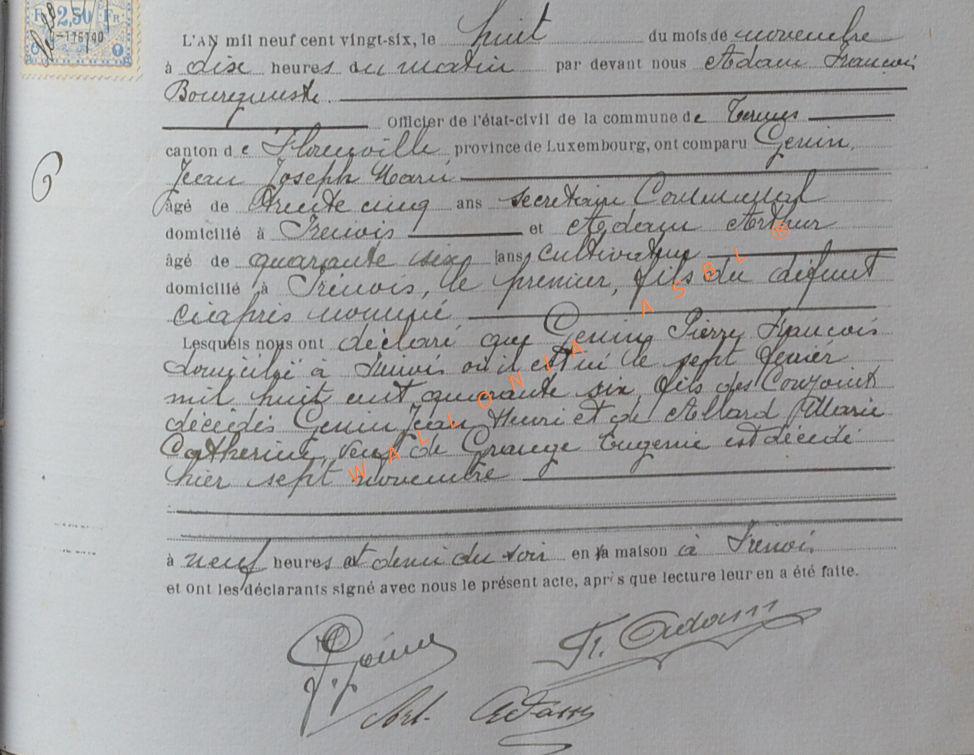 Fr 2,50 Fr
L'AN mil neuf cent vingt-six, le huit du mois de novembre
à dix heures du matin par devant nous Adam François
Bourgmestre
Officier de l'état-civil de la commune de Termes
canton de Florenville, province de Luxembourg, ont comparu Genin,
Jean Joseph
âgé de trente cinq ans secrétaire Communal
domicilié à Frenois et Adam Arthur
âgé de quarante six ans cultivateur
domicilié à Frenois, le premier, fils du défunt
ci après nommé
Lesquels nous ont déclaré que Genin Pierre François
domicilié à Frenois où il est né le sept
mil huit cent quarante six, fils des Conjoints
décédés Genin Jean Henri et de Allard Marie
Catherine, veuf de Grange Eugenie est décédé
hier sept novembre
à neuf heures et demi du soir en sa maison à Frenois
et ont les déclarants signé avec nous le présent acte, après que lecture leur en a été faite.
Genin
Fr. Adam
Art. Adam
WALLONIA ASBL ©